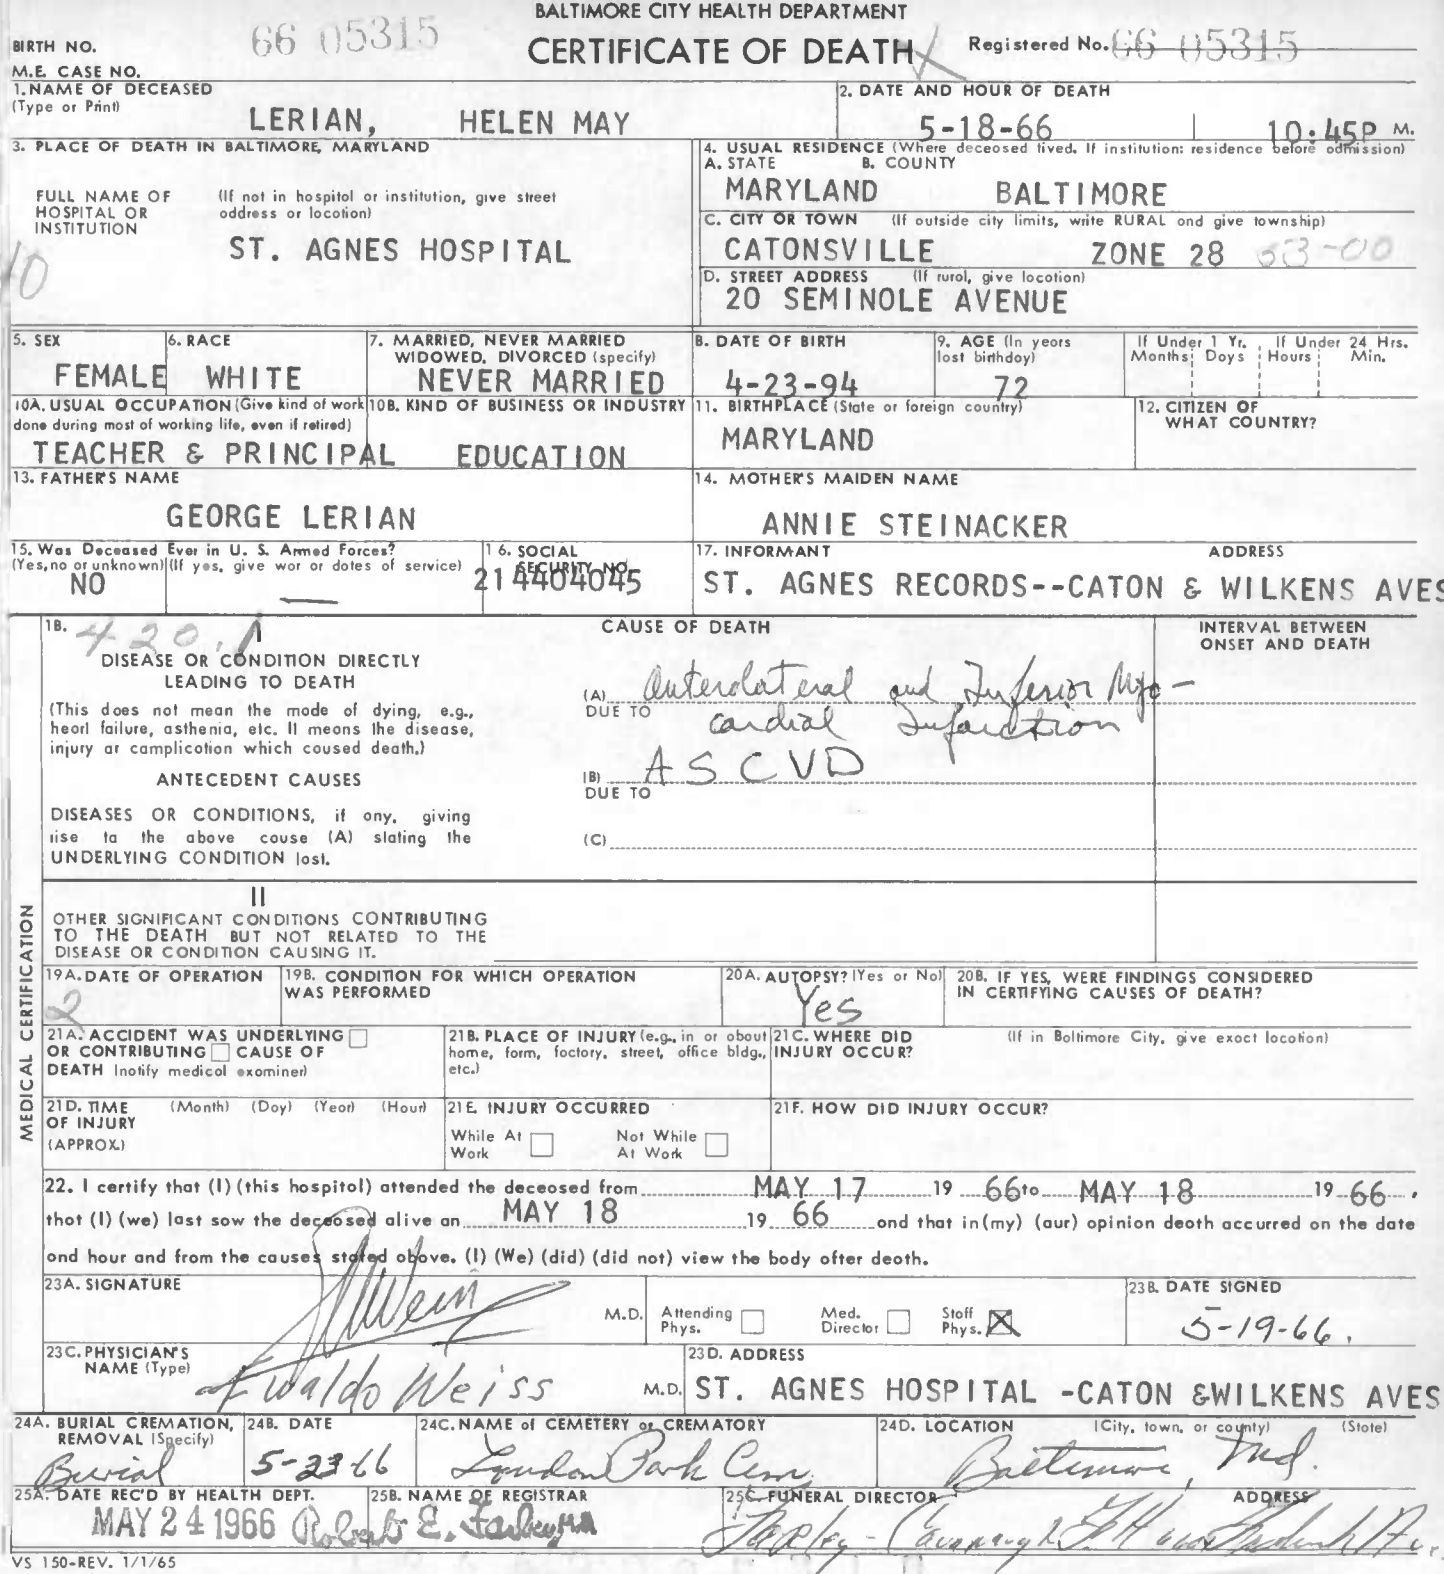 BALTIMORE CITY HEALTH DEPARTMENT
66 05315
CERTIFICATE OF DEATH
BIRTH NO.
Registered No. 66 05315
M.E. CASE NO.
1. NAME OF DECEASED
(Type or Print)
LERIAN, HELEN MAY
2. DATE AND HOUR OF DEATH
5-18-66 10:45P M.
3. PLACE OF DEATH IN BALTIMORE, MARYLAND
FULL NAME OF HOSPITAL OR INSTITUTION
(If not in hospital or institution, give street address or location)
ST. AGNES HOSPITAL
10
4. USUAL RESIDENCE (Where deceased lived. If institution: residence before admission)
A. STATE B. COUNTY
MARYLAND BALTIMORE
C. CITY OR TOWN (If outside city limits, write RURAL and give township)
CATONSVILLE ZONE 28 53-00
D. STREET ADDRESS (If rural, give location)
20 SEMINOLE AVENUE
5. SEX
FEMALE
6. RACE
WHITE
7. MARRIED, NEVER MARRIED
WIDOWED, DIVORCED (specify)
NEVER MARRIED
8. DATE OF BIRTH
4-23-94
9. AGE (In years
last birthday)
72
If Under 1 Yr. If Under 24 Hrs.
Months Days Hours Min.
10A. USUAL OCCUPATION (Give kind of work
done during most of working life, even if retired)
TEACHER & PRINCIPAL
10B. KIND OF BUSINESS OR INDUSTRY
EDUCATION
11. BIRTHPLACE (State or foreign country)
MARYLAND
12. CITIZEN OF
WHAT COUNTRY?
13. FATHER'S NAME
GEORGE LERIAN
14. MOTHER'S MAIDEN NAME
ANNIE STEINACKER
15. Was Deceased Ever in U. S. Armed Forces?
(Yes, no or unknown) (If yes, give war or dates of service)
NO —
16. SOCIAL
SECURITY NO.
214404045
17. INFORMANT ADDRESS
ST. AGNES RECORDS--CATON & WILKENS AVES
18. 420.1
I
DISEASE OR CONDITION DIRECTLY
LEADING TO DEATH
(This does not mean the mode of dying, e.g.,
heart failure, asthenia, etc. It means the disease,
injury or complication which caused death.)
ANTECEDENT CAUSES
DISEASES OR CONDITIONS, if any, giving
rise to the above cause (A) stating the
UNDERLYING CONDITION last.
CAUSE OF DEATH
INTERVAL BETWEEN
ONSET AND DEATH
(A) Anterolateral and Inferior Myo-
DUE TO cardial Infarction
(B) ASCVD
DUE TO
(C)
II
OTHER SIGNIFICANT CONDITIONS CONTRIBUTING
TO THE DEATH BUT NOT RELATED TO THE
DISEASE OR CONDITION CAUSING IT.
MEDICAL CERTIFICATION
19A. DATE OF OPERATION
2
19B. CONDITION FOR WHICH OPERATION
WAS PERFORMED
20A. AUTOPSY? (Yes or No)
Yes
20B. IF YES, WERE FINDINGS CONSIDERED
IN CERTIFYING CAUSES OF DEATH?
21A. ACCIDENT WAS UNDERLYING
OR CONTRIBUTING CAUSE OF
DEATH (notify medical examiner)
21B. PLACE OF INJURY (e.g., in or about
home, farm, factory, street, office bldg.,
etc.)
21C. WHERE DID
INJURY OCCUR?
(If in Baltimore City, give exact location)
21D. TIME
OF INJURY
(APPROX.)
(Month) (Day) (Year) (Hour)
21E. INJURY OCCURRED
While At Work Not While At Work
21F. HOW DID INJURY OCCUR?
22. I certify that (I) (this hospital) attended the deceased from MAY 17 19 66 to MAY 18 19 66 .
that (I) (we) last saw the deceased alive on MAY 18 19 66 and that in (my) (our) opinion death occurred on the date
and hour and from the causes stated above. (I) (We) (did) (did not) view the body after death.
23A. SIGNATURE
M.D.
Attending Phys. Med. Director Staff Phys. X
23B. DATE SIGNED
5-19-66.
23C. PHYSICIAN'S
NAME (Type)
Ewaldo Weiss M.D.
23D. ADDRESS
ST. AGNES HOSPITAL -CATON &WILKENS AVES
24A. BURIAL CREMATION,
REMOVAL (Specify)
Burial
24B. DATE
5-23-66
24C. NAME of CEMETERY or CREMATORY
Loudon Park Cem.
24D. LOCATION (City, town, or county) (State)
Baltimore, Md.
25A. DATE REC'D BY HEALTH DEPT.
MAY 24 1966
25B. NAME OF REGISTRAR
Robert E. Farber MD
25C. FUNERAL DIRECTOR ADDRESS
VS 150-REV. 1/1/65